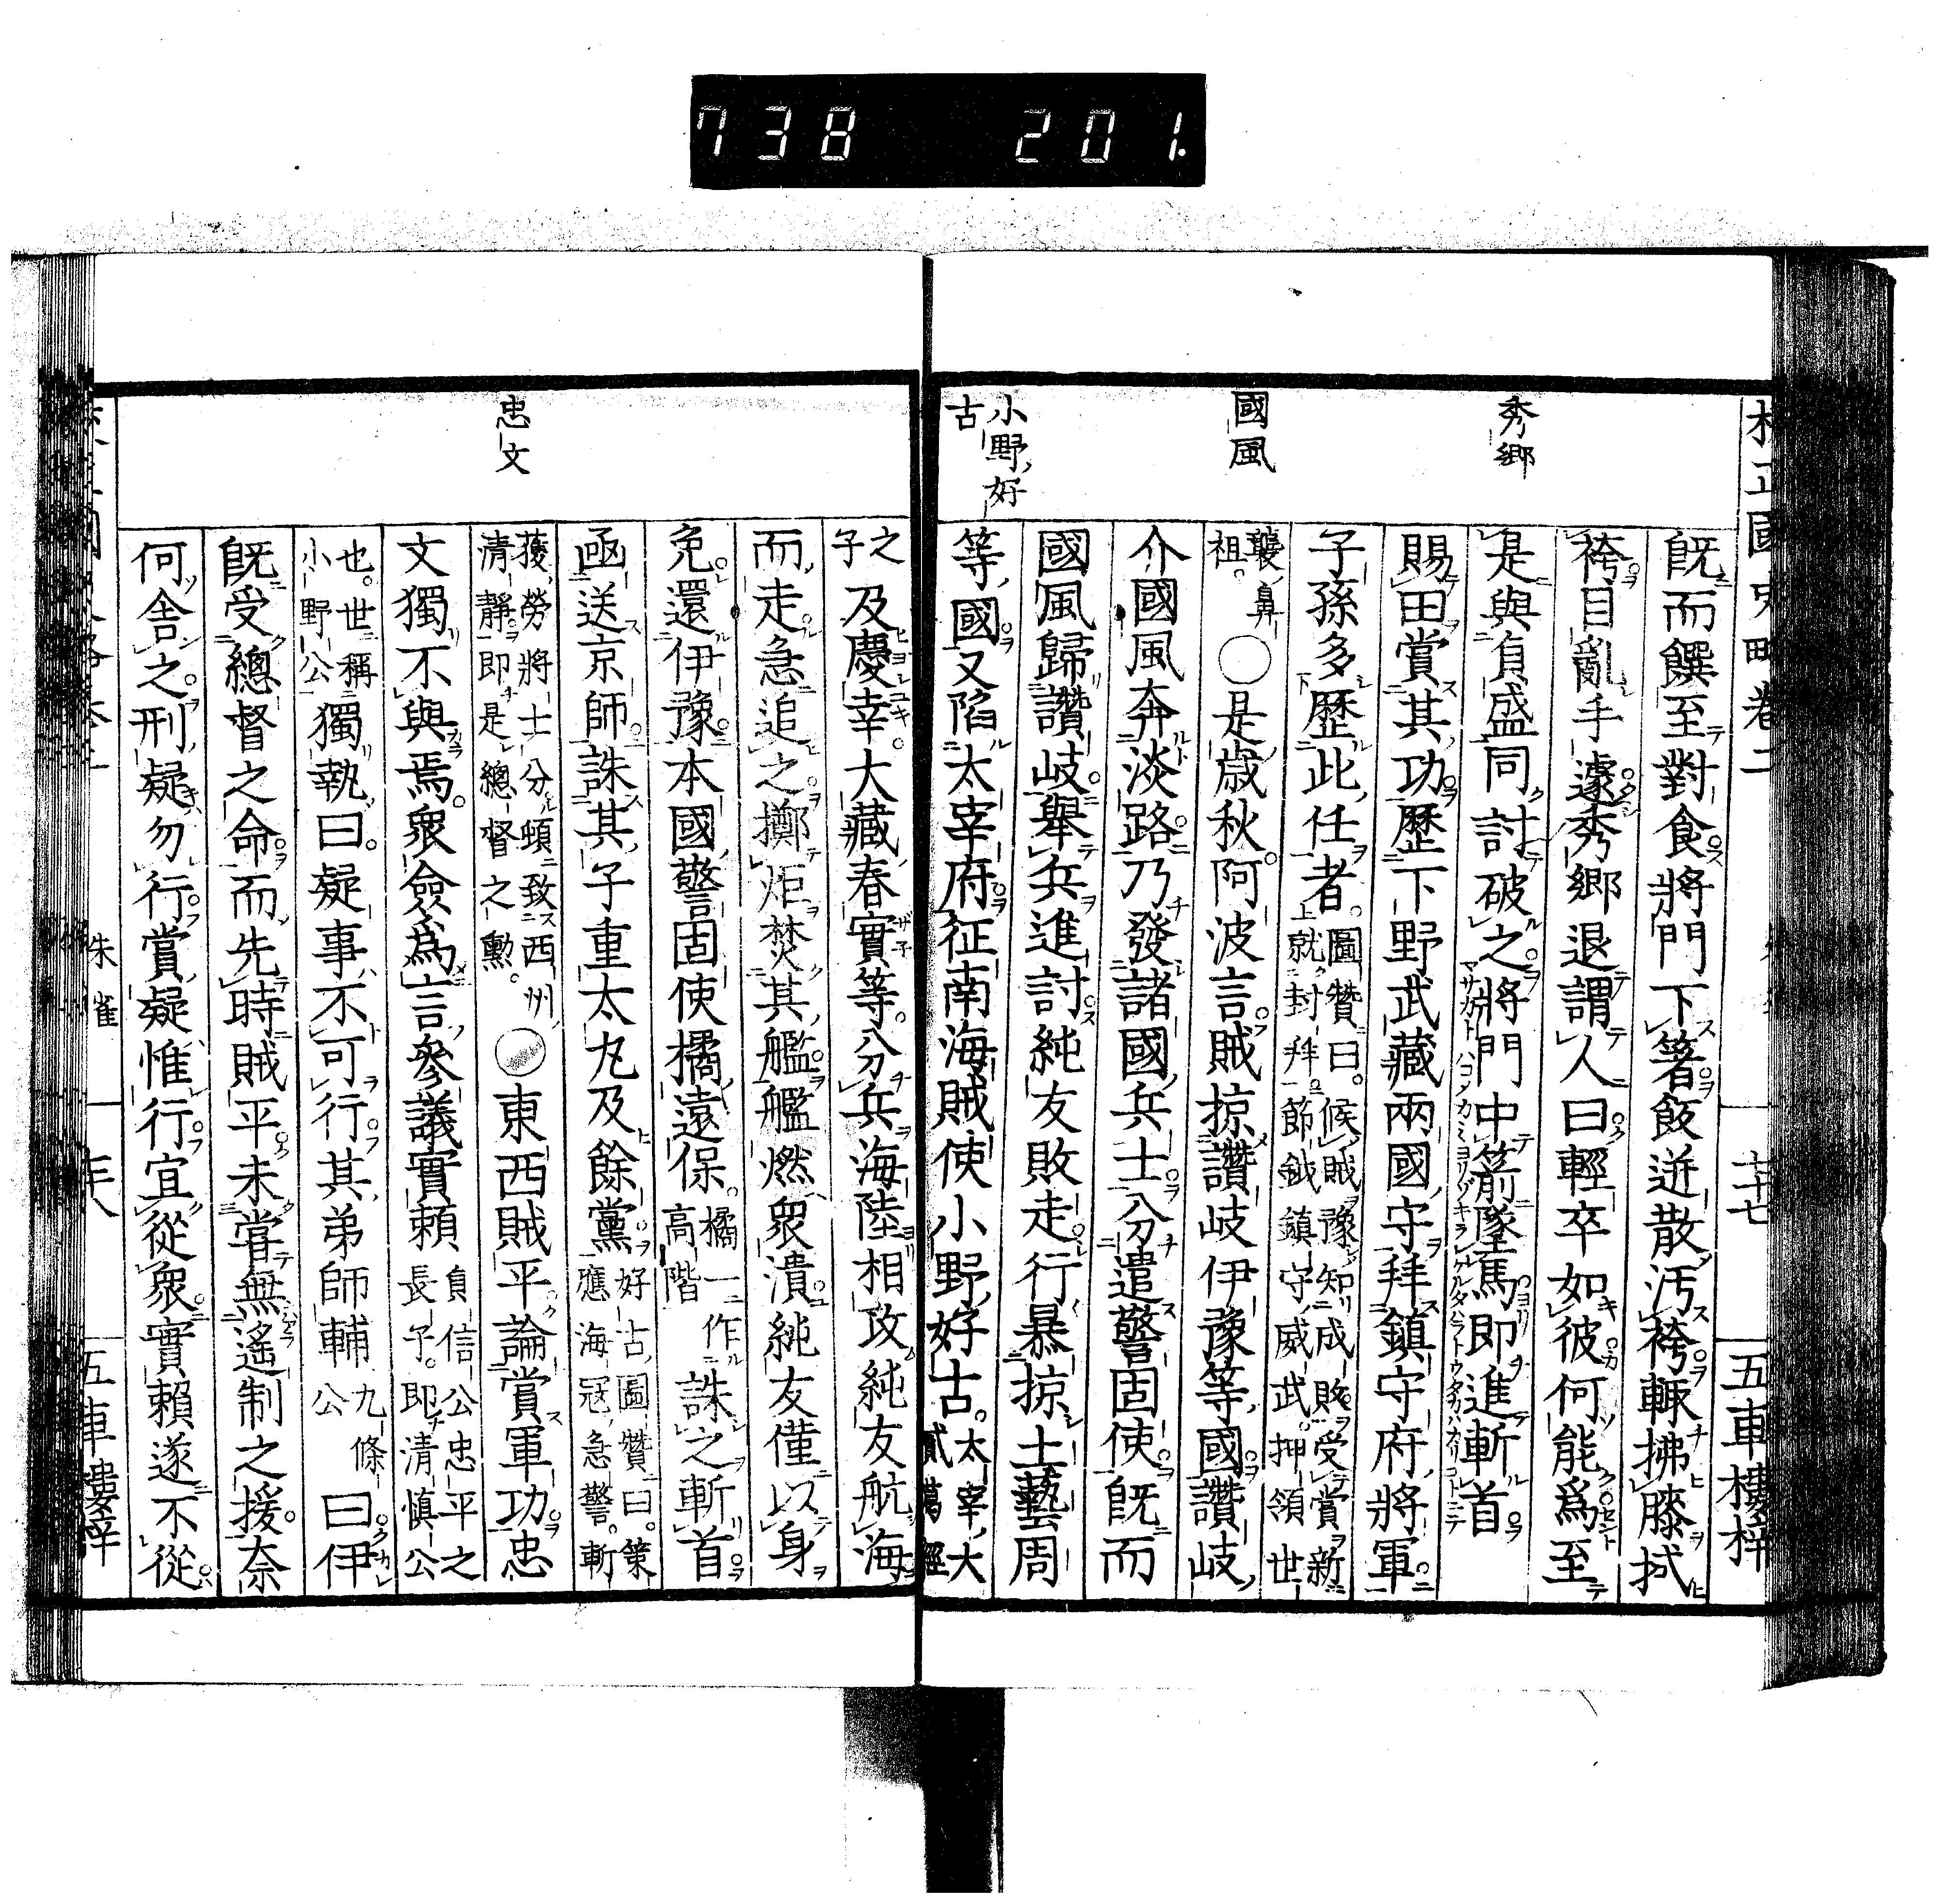 738 201.
校正國史略卷二 五車樓梓
秀郷
國風
小野好
古
既而饌至對食將門下箸飯迸散汚袴輙拂膝拭
袴目亂手遽秀郷退謂人曰輕卒如彼何能爲至
是與貞盛同討破之將門中箭墜馬即進斬首
賜田賞其功歷下野武藏兩國守拜鎮守府將軍
子孫多歷此任者。圖贊曰。候賊豫知成敗受賞新
就封拜節鉞鎮守威武。押領世
襲鼻
祖。○是歳秋。阿波言賊掠讚岐伊豫等國讚岐
介國風奔淡路乃發諸國兵士分遣警固使既而
國風歸讚岐舉兵進討純友敗走行暴掠土藝周
等國又陷太宰府征南海賊使小野好古。太宰大
貳葛絃
之
子及慶幸。大藏春實等。分兵海陸相攻純友航海
而走急追之擲炬焚其艦艦燃衆潰純友僅以身
免還伊豫本國警固使橘遠保。橘一作
高階誅之斬首
函送京師。誅其子重太丸及餘黨。好古圖贊曰。策
應海冦急警。斬
獲勞將士分頓致西州
清靜即是總督之勲。○東西賊平論賞軍功忠
文獨不與焉。衆僉爲言參議實賴貞信公忠平之
長子。即清慎公
也。世稱
小野公獨執曰。疑事不可行其弟師輔九條
公曰伊
既受總督之命而先時賊平未嘗無遙制之援。奈
何舍之刑疑勿行賞疑惟行宜從衆實賴遂不從
忠文
朱雀
五車樓梓